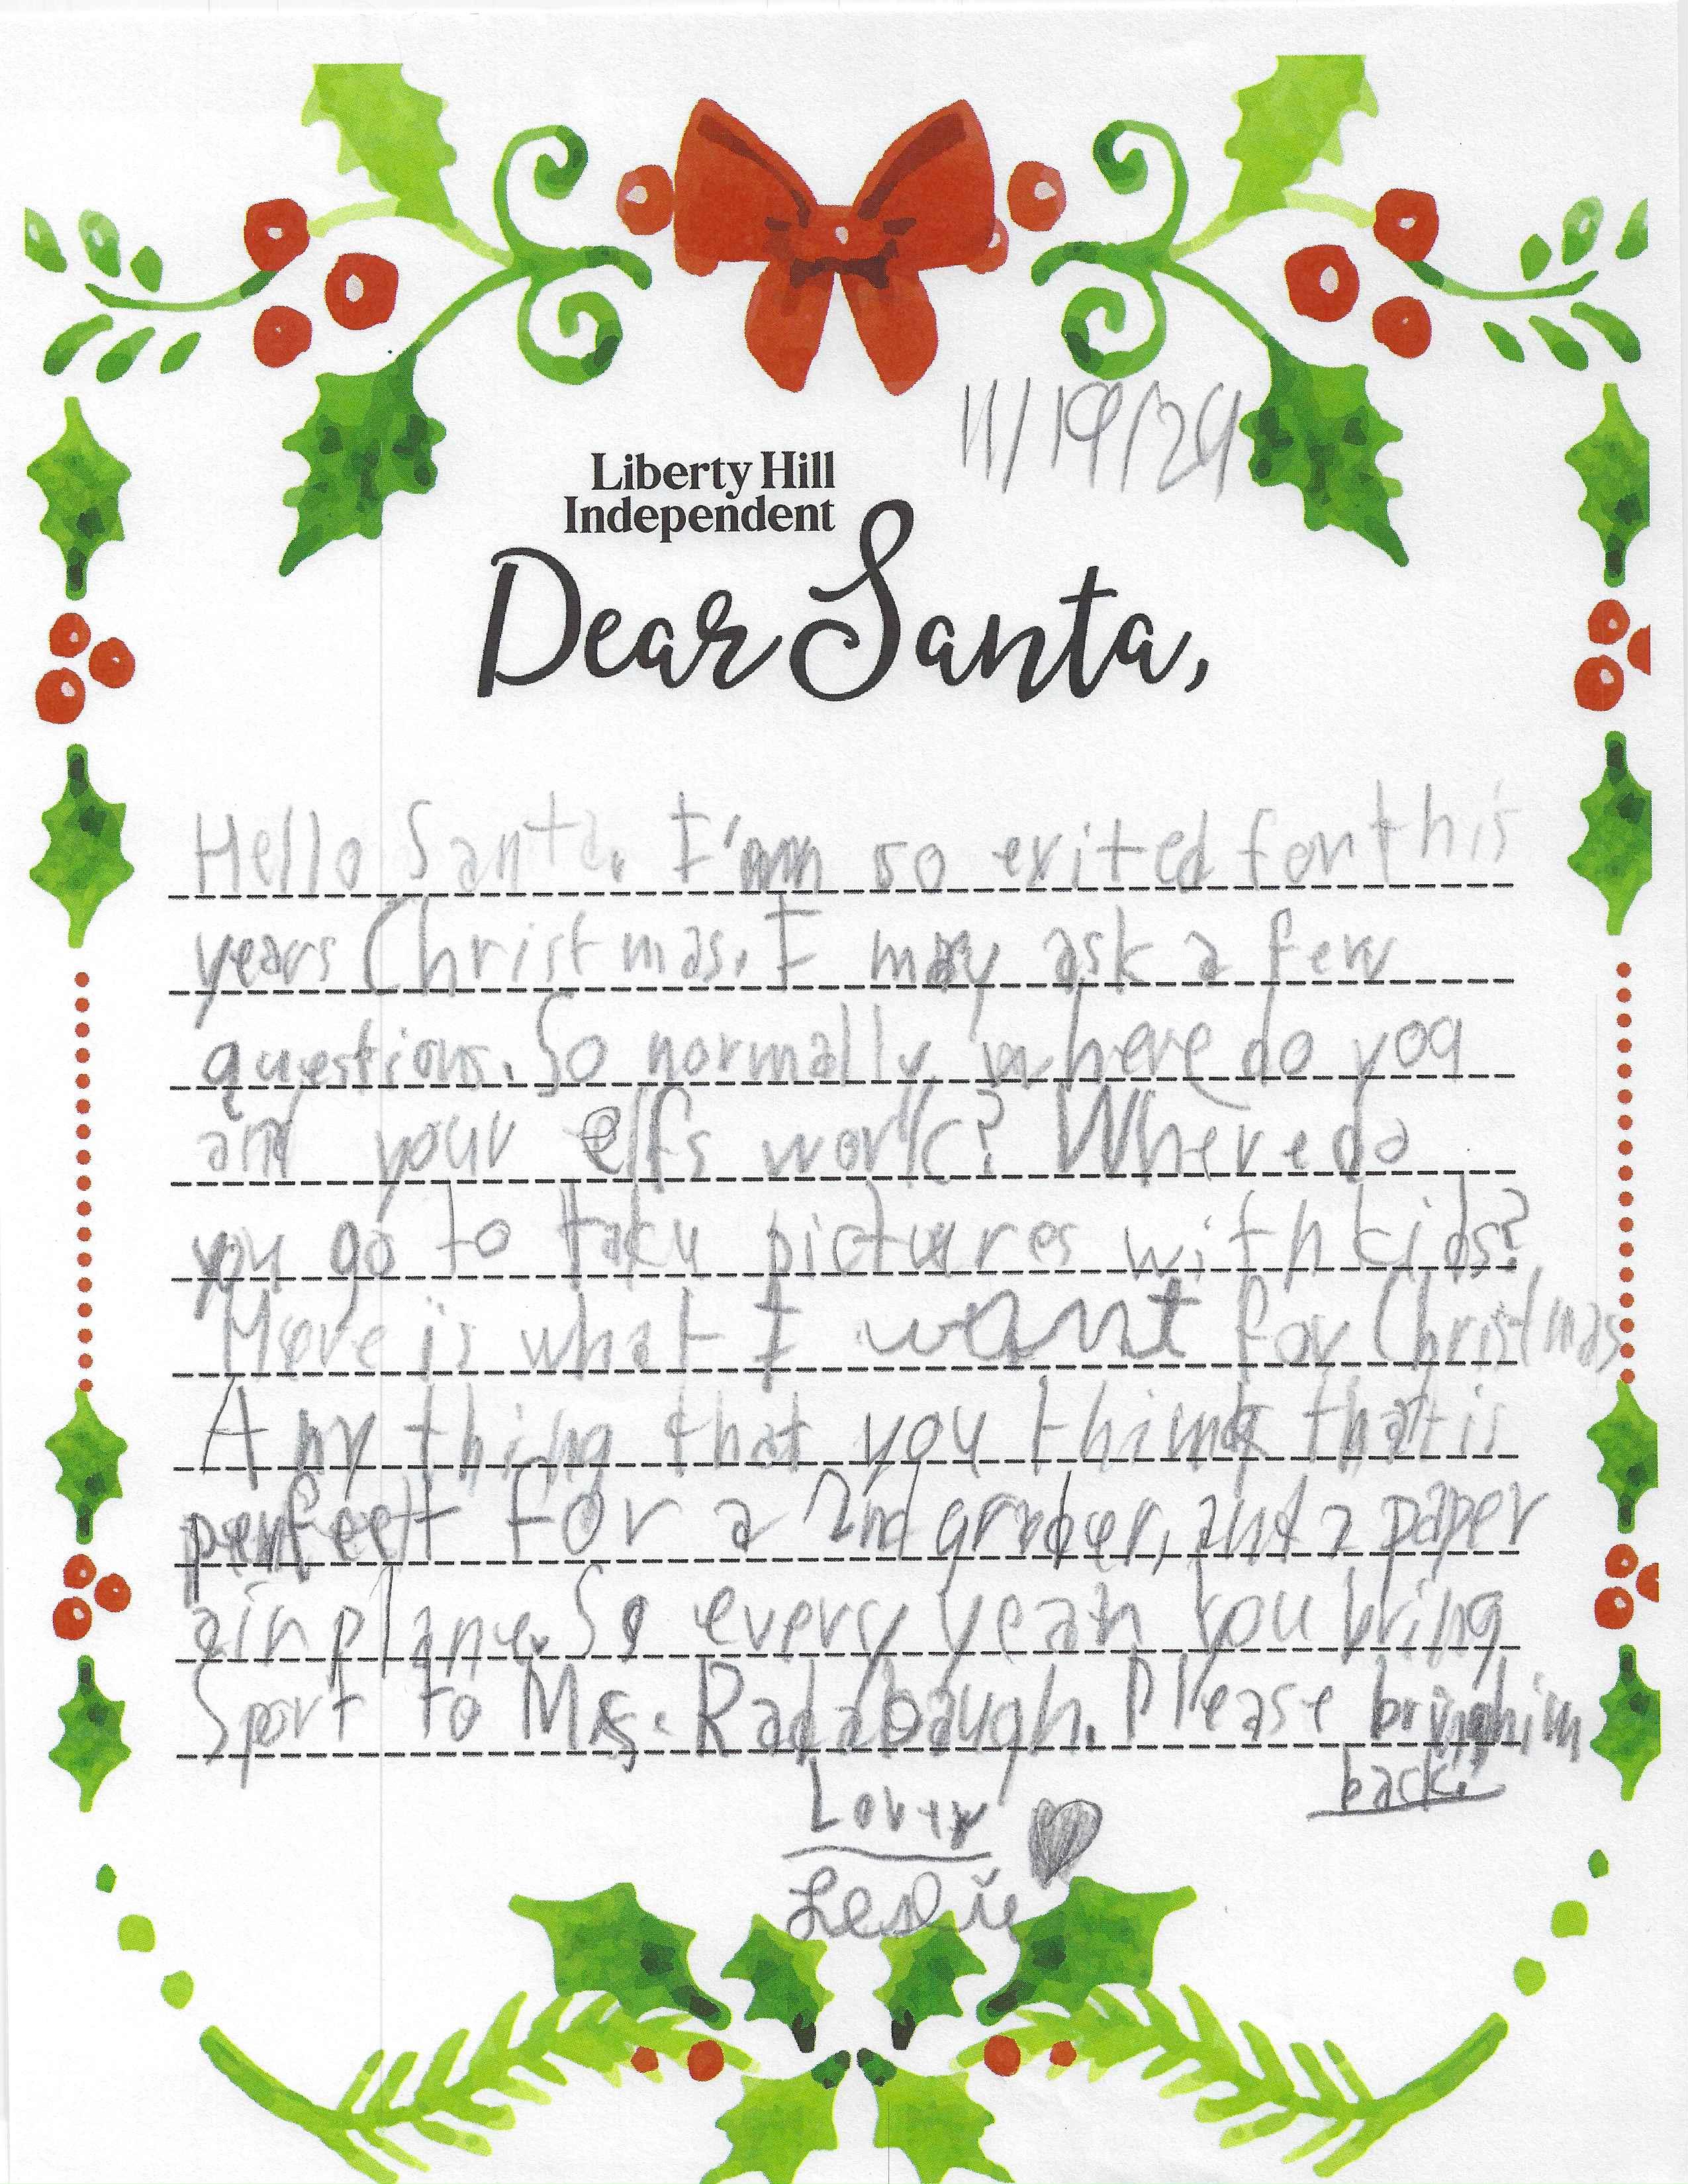 11/19/24
Liberty Hill
Independent
Dear Santa,
Hello Santa. I'am so exited for this
years Christmas. I may ask a few
questions. So normally where do you
and your elfs work? Where do
you go to take pictures with kids?
Here is what I want for Christmas
Any thing that you think that is
perfect for a 2nd grader, and a paper
airplane. So every year you bring
Sport to Ms. Radabaugh. Please bring him
back.
Love
Leslie